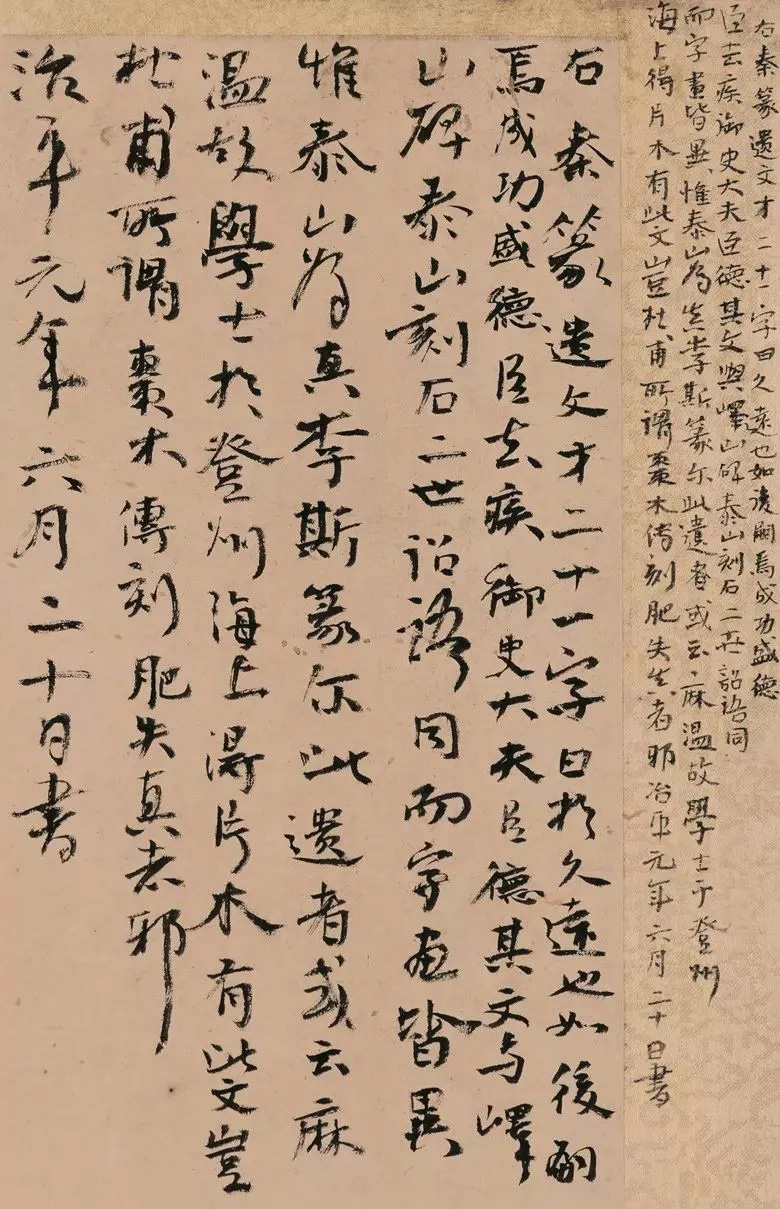 右秦篆遺文才二十一字曰久遠也如後嗣焉成功盛德
臣去疾御史大夫臣德其文與嶧山碑泰山刻石二世詔語同
而字畫皆異惟泰山為真李斯篆尔此遺者或云麻温故學士于登州
海上得片木有此文豈杜甫所謂棗木傳刻肥失真者邪治平元年六月二十日書
右秦篆遺文才二十一字曰於久遠也如後嗣
焉成功盛德臣去疾御史大夫臣德其文与嶧
山碑泰山刻石二世詔語同而字畫皆異
惟泰山為真李斯篆尔此遺者或云麻
温故學士於登州海上得片木有此文豈
杜甫所謂棗木傳刻肥失真者邪
治平元年六月二十日書